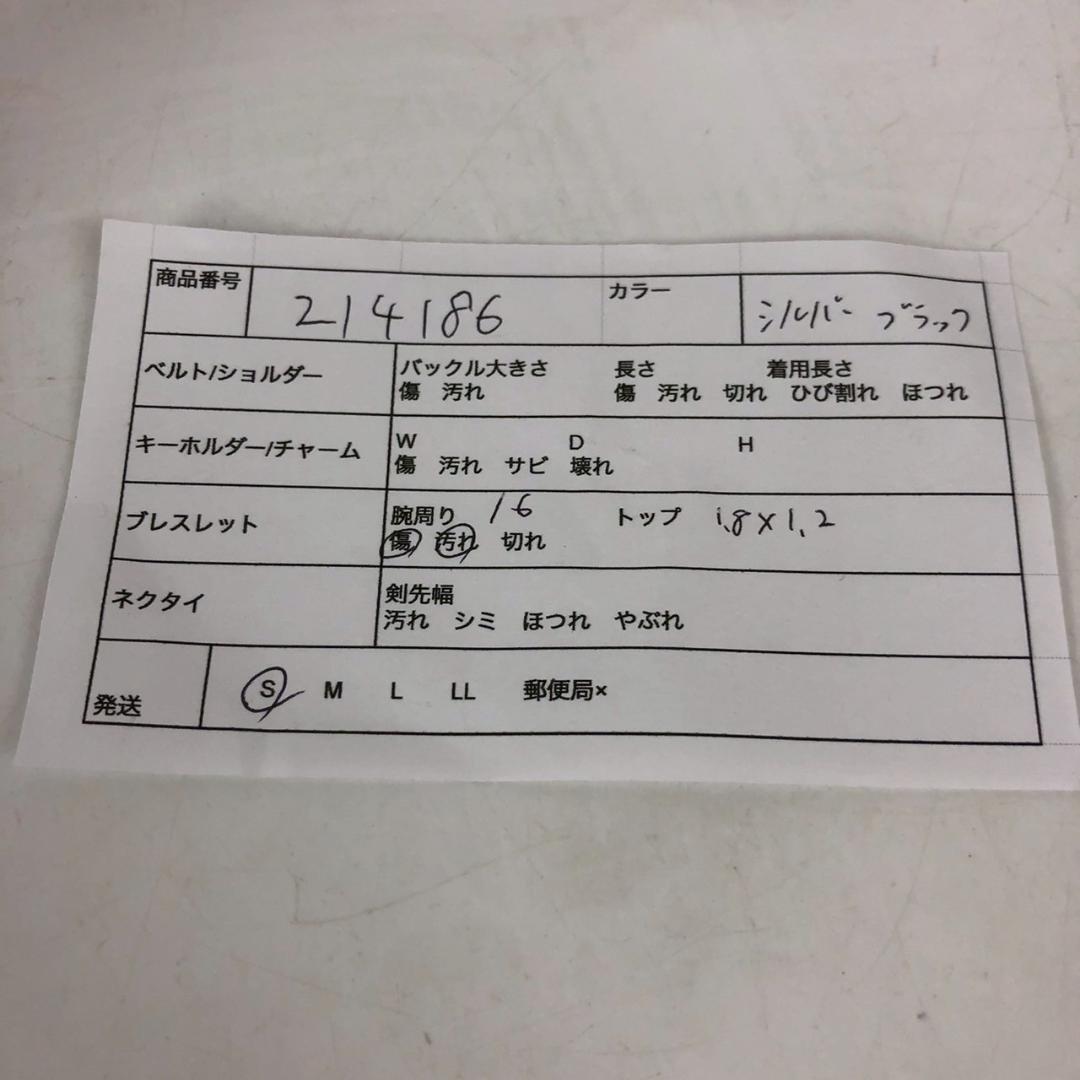 商品番号 214186 カラー シルバー ブラック
ベルト/ショルダー バックル大きさ 長さ 着用長さ
傷 汚れ 傷 汚れ 切れ ひび割れ ほつれ
キーホルダー/チャーム W D H
傷 汚れ サビ 壊れ
ブレスレット 腕周り 16 トップ 1.8×1.2
傷 汚れ 切れ
ネクタイ 剣先幅
汚れ シミ ほつれ やぶれ
発送 S M L LL 郵便局×